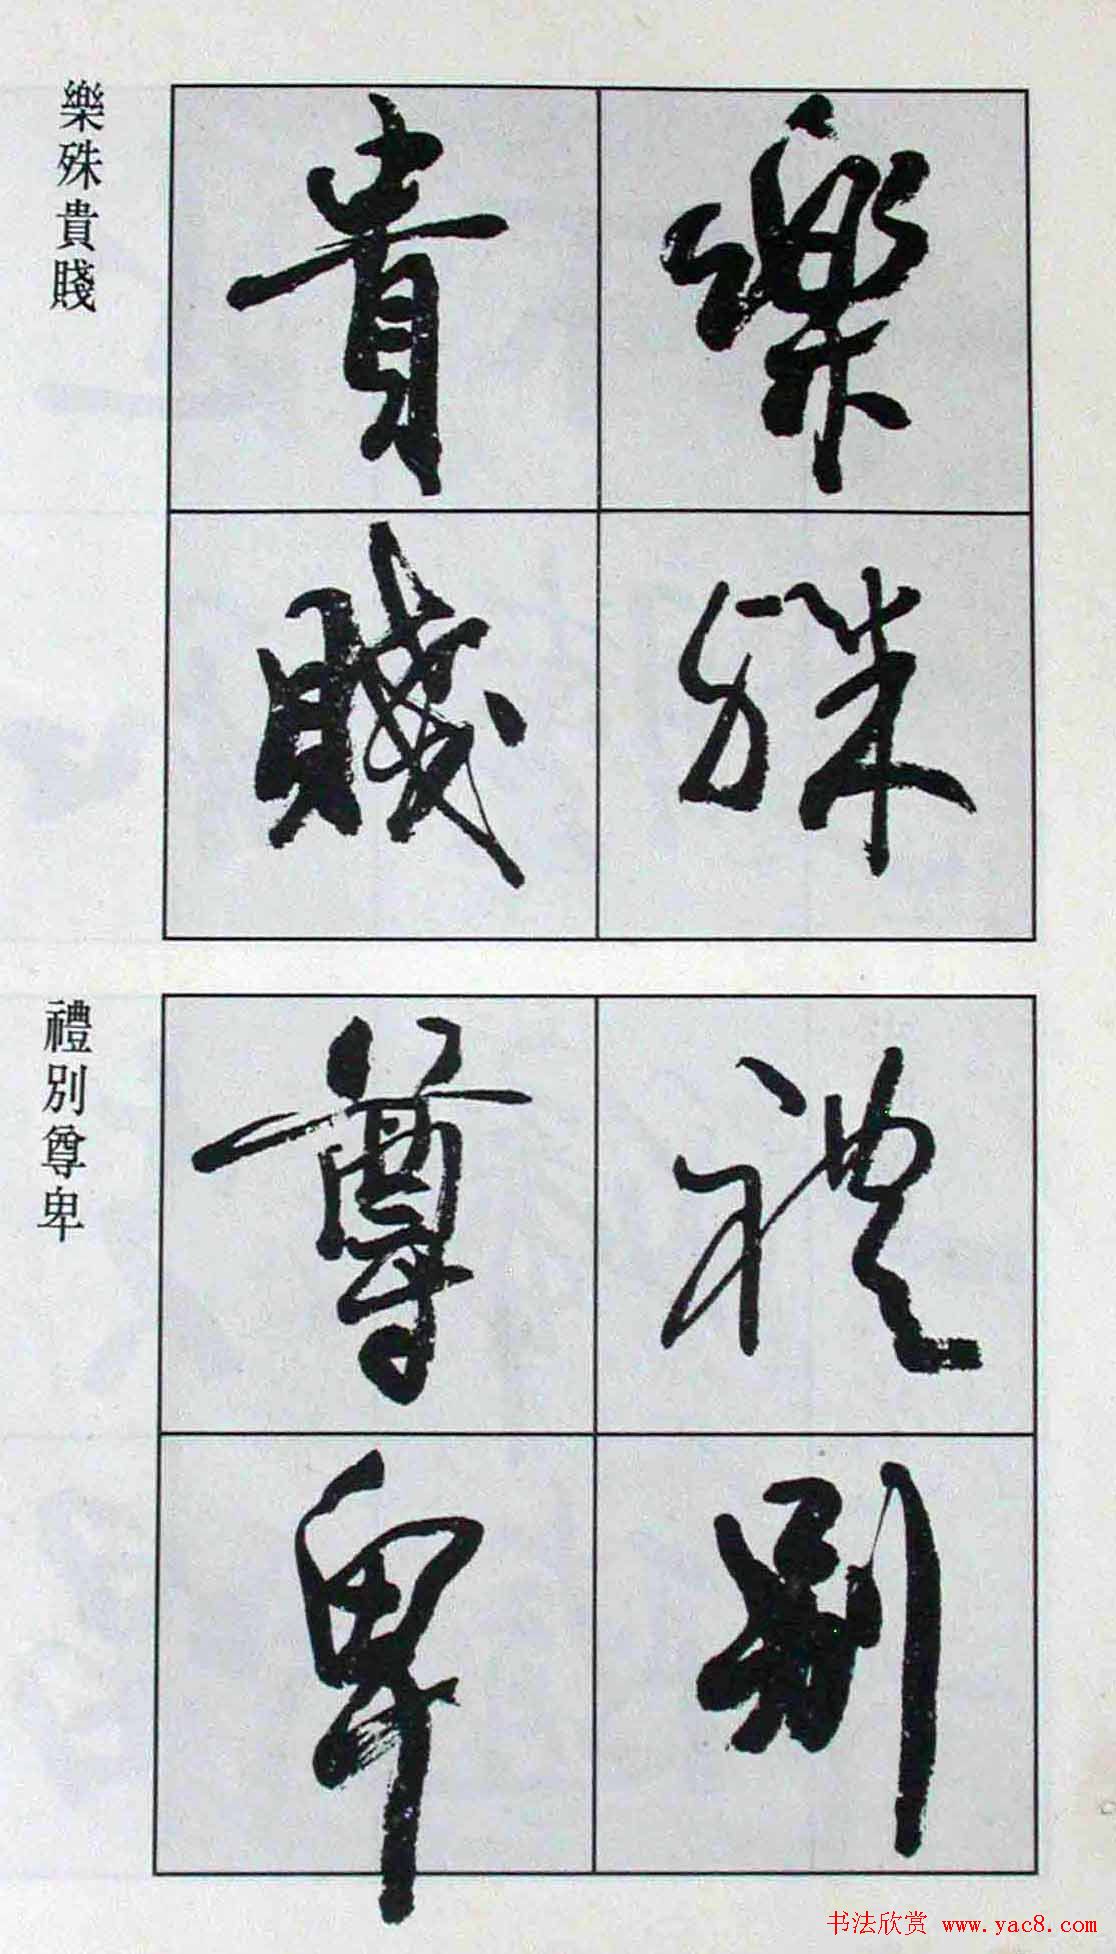 樂殊
貴賤
樂殊貴賤
禮別
尊卑
禮別尊卑
书法欣赏 www.yac8.com